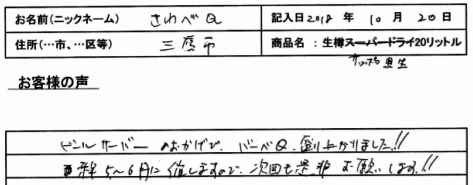 お名前(ニックネーム) さわべQ 記入日 2018 年 10 月 20 日
住所(…市、…区等) 三鷹市 商品名:生樽スーパードライ20リットル
サッポロ黒生
お客様の声
ビールサーバーのおかげで、バーベQ、盛り上がりました!!
来年5〜6月に催しますので、次回も是非お願いします!!